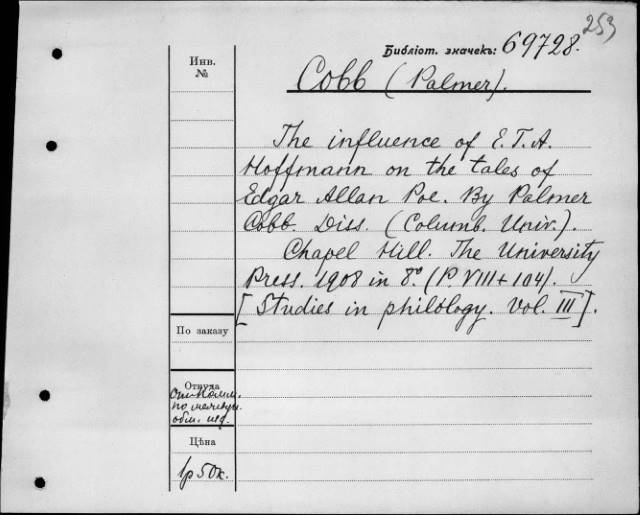 253
Библіот. значекъ: 69728.
Инв.
№
Cobb (Palmer).
The influence of E.T.A.
Hoffmann on the tales of
Edgar Allan Poe. By Palmer
Cobb. Diss. (Columb. Univ.).
Chapel Hill. The University
Press. 1908 in 8º. (P. VIII + 104).
[Studies in philology. Vol. III].
По заказу
Откуда
От Комм.
по междун.
обм. изд.
Цѣна
1р 50к.